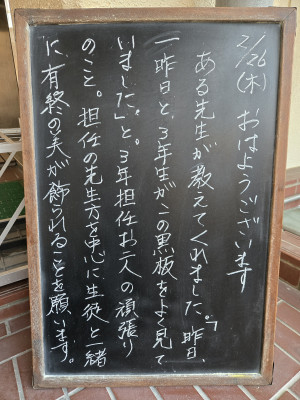 2/26(木) おはようございます
ある先生が教えてくれました。「昨日、
一昨日と、3年生がこの黒板をよく見て
いました。」と。3年担任お二人の頑張り
のこと。担任の先生方を中心に生徒と一緒
に、有終の美が飾られることを願います。